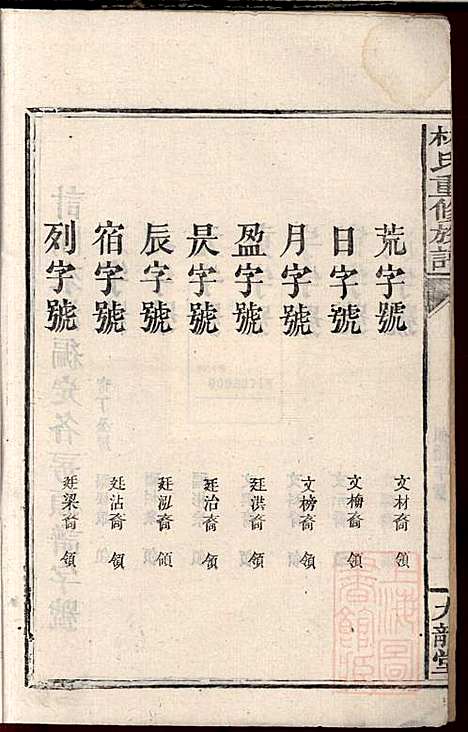 林氏重修族譜
九龍堂
荒字號 文材裔 領
日字號 文楡裔 領
月字號 文榜裔 領
盈字號 廷洪裔 領
昃字號 廷治裔 領
辰字號 廷泓裔 領
宿字號 廷沾裔 領
列字號 廷梁裔 領
上海圖書館藏